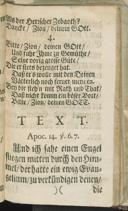 Als der Herrscher Zebaoth?
Dancke / Zion / deinem GOtt.
4.
Bitte / Zion / deinen GOtt /
Und ruff ihm zu Gemüthe /
Seine vorig grosse Güte /
Die er stets bezeiget hat.
Daß er's wolle mit den Deinen
Väterlich noch ferner meinen,
Bey dir seyn mit Rath und That/
Daß nicht komm ein böser Bott/
Bitte / Zion / deinen GOTT.
TEXT.
Apoc. 14. ℣. 6. 7.
Und ich sahe einen Engel
fliegen mitten durch den Him-
mel / der hatte ein ewig Evan-
gelium, zu verkündigen denen/
die